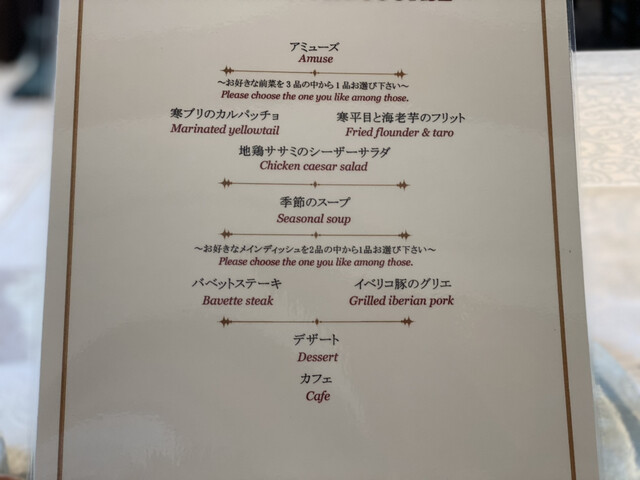 アミューズ
Amuse
～お好きな前菜を3品の中から1品お選び下さい～
Please choose the one you like among those.
寒ブリのカルパッチョ 寒平目と海老芋のフリット
Marinated yellowtail Fried flounder & taro
地鶏ササミのシーザーサラダ
Chicken caesar salad
季節のスープ
Seasonal soup
～お好きなメインディッシュを2品の中から1品お選び下さい～
Please choose the one you like among those.
バベットステーキ イベリコ豚のグリエ
Bavette steak Grilled iberian pork
デザート
Dessert
カフェ
Cafe